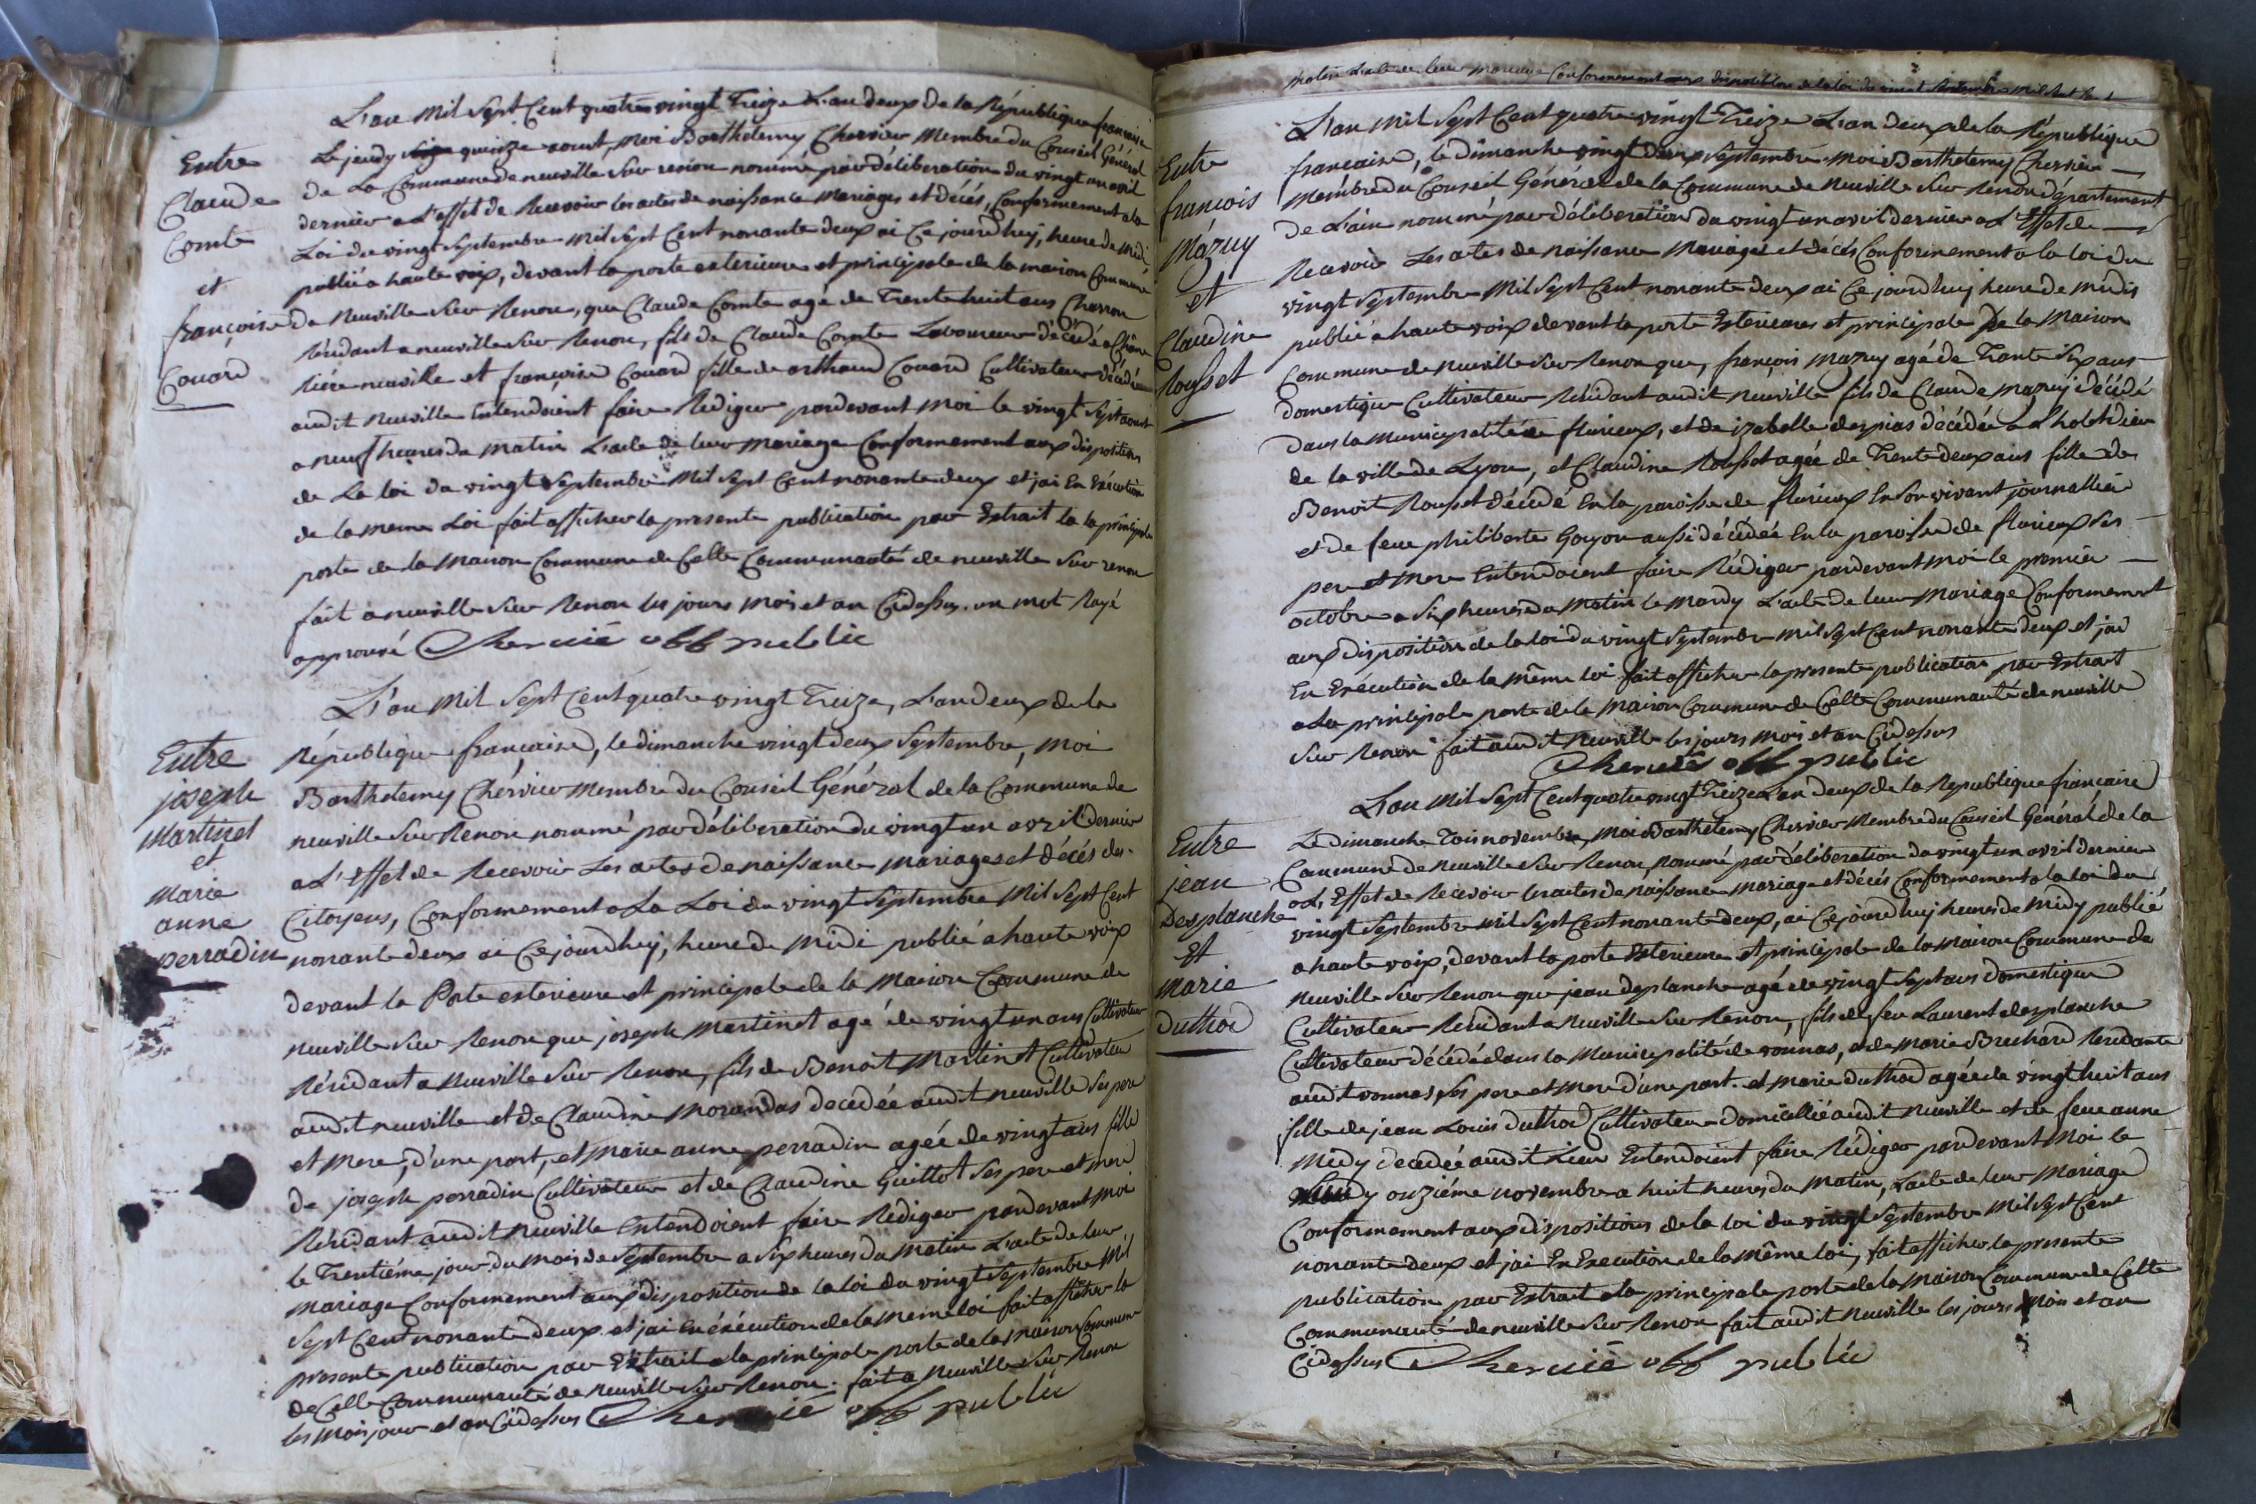 L'an Mil Sept Cent quatre vingt Treize L'an deux de la République francaise
Le jeudy quinze aout, Moi Barthelemy Chervier Membre du Conseil Général
de La Commune de neuville Sur renon nommé par déliberation du vingt un avril
dernier a L'effet de Recevoir les actes de naissance Mariages et décés, Conformement a la
Loi du vingt Septembre Mil Sept Cent nonante deux ai Ce jourd'huy, heure de Midi
publié a haute voix, devant la porte exterieure et principale de la maison Commune
de Neuville Sur Renon, que Claude Comte agé de Trente huit ans Charron
Résidant a neuville Sur Renon, fils de Claude Comte Laboureur décédé a
neuville et françoise Couard fille de arthaud Couard Cultivateur décédé
audit Neuville Entendoient faire Rediger pardevant Moi le vingt Sept aout
a neuf heures du Matin L'acte de leur Mariage Conformement aux dispositions
de La loi du vingt Septembre Mil Sept Cent nonante deux et jai En Exécution
de la meme Loi fait afficher la presente publication par Extrait la la principale
porte de la Maison Commune de Cette Communauté de neuville Sur renon
fait a neuville Sur Renon les jours Mois et an Cidessus. un mot Rayé
approuvé Chervié off public
Entre
Claude
Comte
et
françoise
Couard
L'an Mil Sept Cent quatre vingt Treize, L'an deux de la
République francaise, le dimanche vingt deux Septembre, Moi
Barthelemy Chérvier Membre du Conseil Général de la Commune de
neuville Sur Renon nommé par déliberation du vingt un avril dernier
a L'Effet de Recevoir Les actes de naissance Mariages et décés des
Citoyens, Conformement a La Loi du vingt Septembre Mil Sept Cent
nonante deux ai Ce jourdhuy, heure de Midi publié a haute voix
devant la Porte exterieure et principale de la Maison Commune de
Neuville Sur Renon que joseph Martinet agé de vingt un ans Cultivateur
Résidant a Neuville Sur Renon, fils de Benoit Martinet Cultivateur
audit neuville et de Claudine Morandas decedée audit neuville Ses pere
et Mere, d'une part, et Marie anne perradin agée de vingt ans fille
de joseph perradin Cultivateur et de Claudine Guillot Ses pere et mere
Résidant audit Neuville Entendoient faire Rediger pardevant Moi
le Trentiéme jour du Mois de Septembre a Six heures du Matin L'acte de leur
Mariage Conformement aux disposition de la loi du vingt Septembre Mil
Sept Cent nonante deux et jai En éxécution de la meme loi fait afficher la
presente publication par Extrait a la principale porte de la Maison Commune
de Cette Communauté de Neuville Sur Renon. fait a Neuville Sur Renon
les Mois jour et an Cidessus Chervié off public
Entre
joseph
Martinet
et
Marie
anne
perradin
L'acte de leur Mariage Conformement aux disposition de la loi du vingt Septembre Mil Sept Cent
L'an Mil Sept Cent quatre vingt Treize L'an deux de la République
francaise, le dimanche vingt deux Septembre Moi Barthelemy Chervier
Membre du Conseil Général de la Commune de Neuville Sur Renon département
de L'ain nommé par déliberation du vingt un avril dernier a L'Effet de
Recevoir Les actes de naissance Mariages et décés Conformement a la loi du
vingt Septembre Mil Sept Cent nonante deux ai Ce jourdhuy heure de midis
publié a haute voix devant la porte Exterieures et principale De la Maison
Commune de Neuville Sur Renon que, françois Mazuy agé de Trante Six ans
domestique Cultivateur Résidant audit Neuville fils de Claude Mazuy décédé
dans la Municipalité de flurieux, et de izabelle despias décédée a L'hotel dieu
de la ville de Lyon, et Claudine Rousset agée de Trente deux ans fille de
Benoit Rousset décédé En la paroisse de flurieux En Son vivant journallié
et de feue philiberte Goyon aussi décédée En la paroisse de flurieux Ses
pere et Mere Entendoient faire Rédiger pardevant Moi le premier
octobre a Six heures du Matin le Mardy L'acte de leur Mariage Conformement
aux disposition de la loi du vingt Septembre Mil Sept Cent nonante deux et jai
En Exécution de la même loi fait afficher la presente publication par Extrait
a La principale porte de la Maison Commune de Cette Communauté de neuville
Sur Renon fait audit Neuville les jours Mois et an Cidessus
Chervié off public
Entre
francois
Mazuy
et
Claudine
Rousset
L'an Mil Sept Cent quatre vingt Treize L'an deux de la Republique francaise
Le Dimanche Trois novembre, Moi Barthelemy Chervier Membre du Conseil Général de la
Commune de Neuville Sur Renon, nommé par déliberation du vingt un avril dernier
a L'Effet de Recevoir les actes de naissance Mariage et décés Conformement a la loi du
vingt Septembre Mil Sept Cent nonante deux, ai Ce jourd'huy heures de Midy publié
a haute voix, devant la porte Exterieure et principale de la Maison Commune de
Neuville Sur Renon que jean desplanche agé de vingt Sept ans domestique
Cultivateur Résidant a Neuville Sur Renon, fils de feu Laurent desplanche
Cultivateur décédé dans la Municipalité de vonnas, et de Marie Brechard Residante
audit vonnas, Ses pere et Mere d'une part. et Marie duthod agée de vingt huit ans
fille de jean Louis duthod Cultivateur domicillié audit neuville et de feue anne
Midy decedée audit Lieu Entendoient faire Rédiger pardevant Moi le
onziéme novembre a huit heures du Matin, L'acte de leur Mariage
Conformement aux dispositions de la loi du vingt Septembre Mil Sept Cent
nonante deux et jai En Execution de la même loi, fait afficher la presente
publication par Extrait a la principale porte de la Maison Commune de Cette
Communauté de neuville Sur Renon fait audit Neuville les jours Mois et an
Cidessus Chervié off public
Entre
jean
Desplanche
Et
Marie
duthod